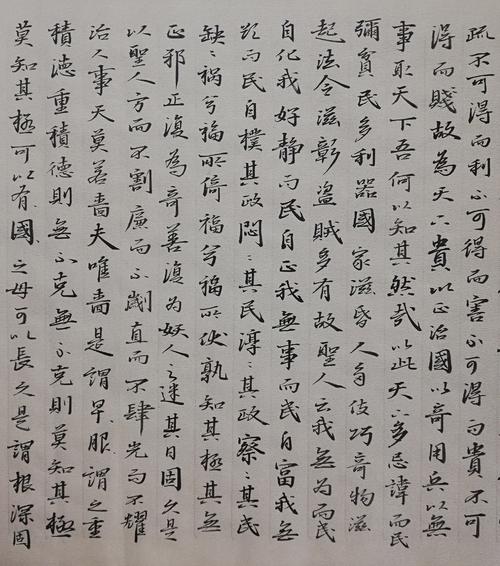 疏不可得而利不可得而害不可得而貴不可
得而賤故為天下貴以正治國以奇用兵以無
事取天下吾何以知其然哉以此天下多忌諱而民
彌貧民多利器國家滋昏人多伎巧奇物滋
起法令滋彰盜賊多有故聖人云我無為而民
自化我好静而民自正我無事而民自富我無
欲而民自樸其政悶〻其民淳〻其政察〻其民
缺〻禍兮福所倚福兮禍所伏孰知其極其無
正邪正復為奇善復為妖人之迷其日固久是
以聖人方而不割廉而不劌直而不肆光而不耀
治人事天莫若嗇夫唯嗇是謂早服〻謂之重
積德重積德則無不克無不克則莫知其極
莫知其極可以有〻國〻之母可以長久是謂根深固